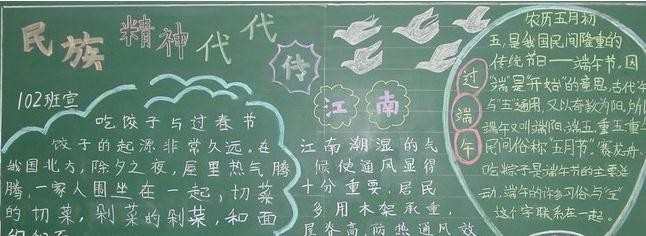 民族精神代代传
102班宣
吃饺子与过春节
饺子的起源非常久远。在
我国北方,除夕之夜,屋里热气腾
腾,一家人围坐在一起,切菜
的切菜,剁菜的剁菜,和面
江南
江南潮湿的气
候使通风显得
十分重要,居民
多用木架承重,
屋脊高,防热通风效
过端午
农历五月初
五,是我国民间隆重的
传统节日——端午节。因
"端"是"开始"的意思,古代"午"
与"五"通用,又以奇数为阳,所以
端午又叫端阳、端五、重五、重午
民间俗称"五月节"。赛龙舟、
吃粽子是端午节的主要活
动,端午的许多习俗与"五"
这个字联系在一起。